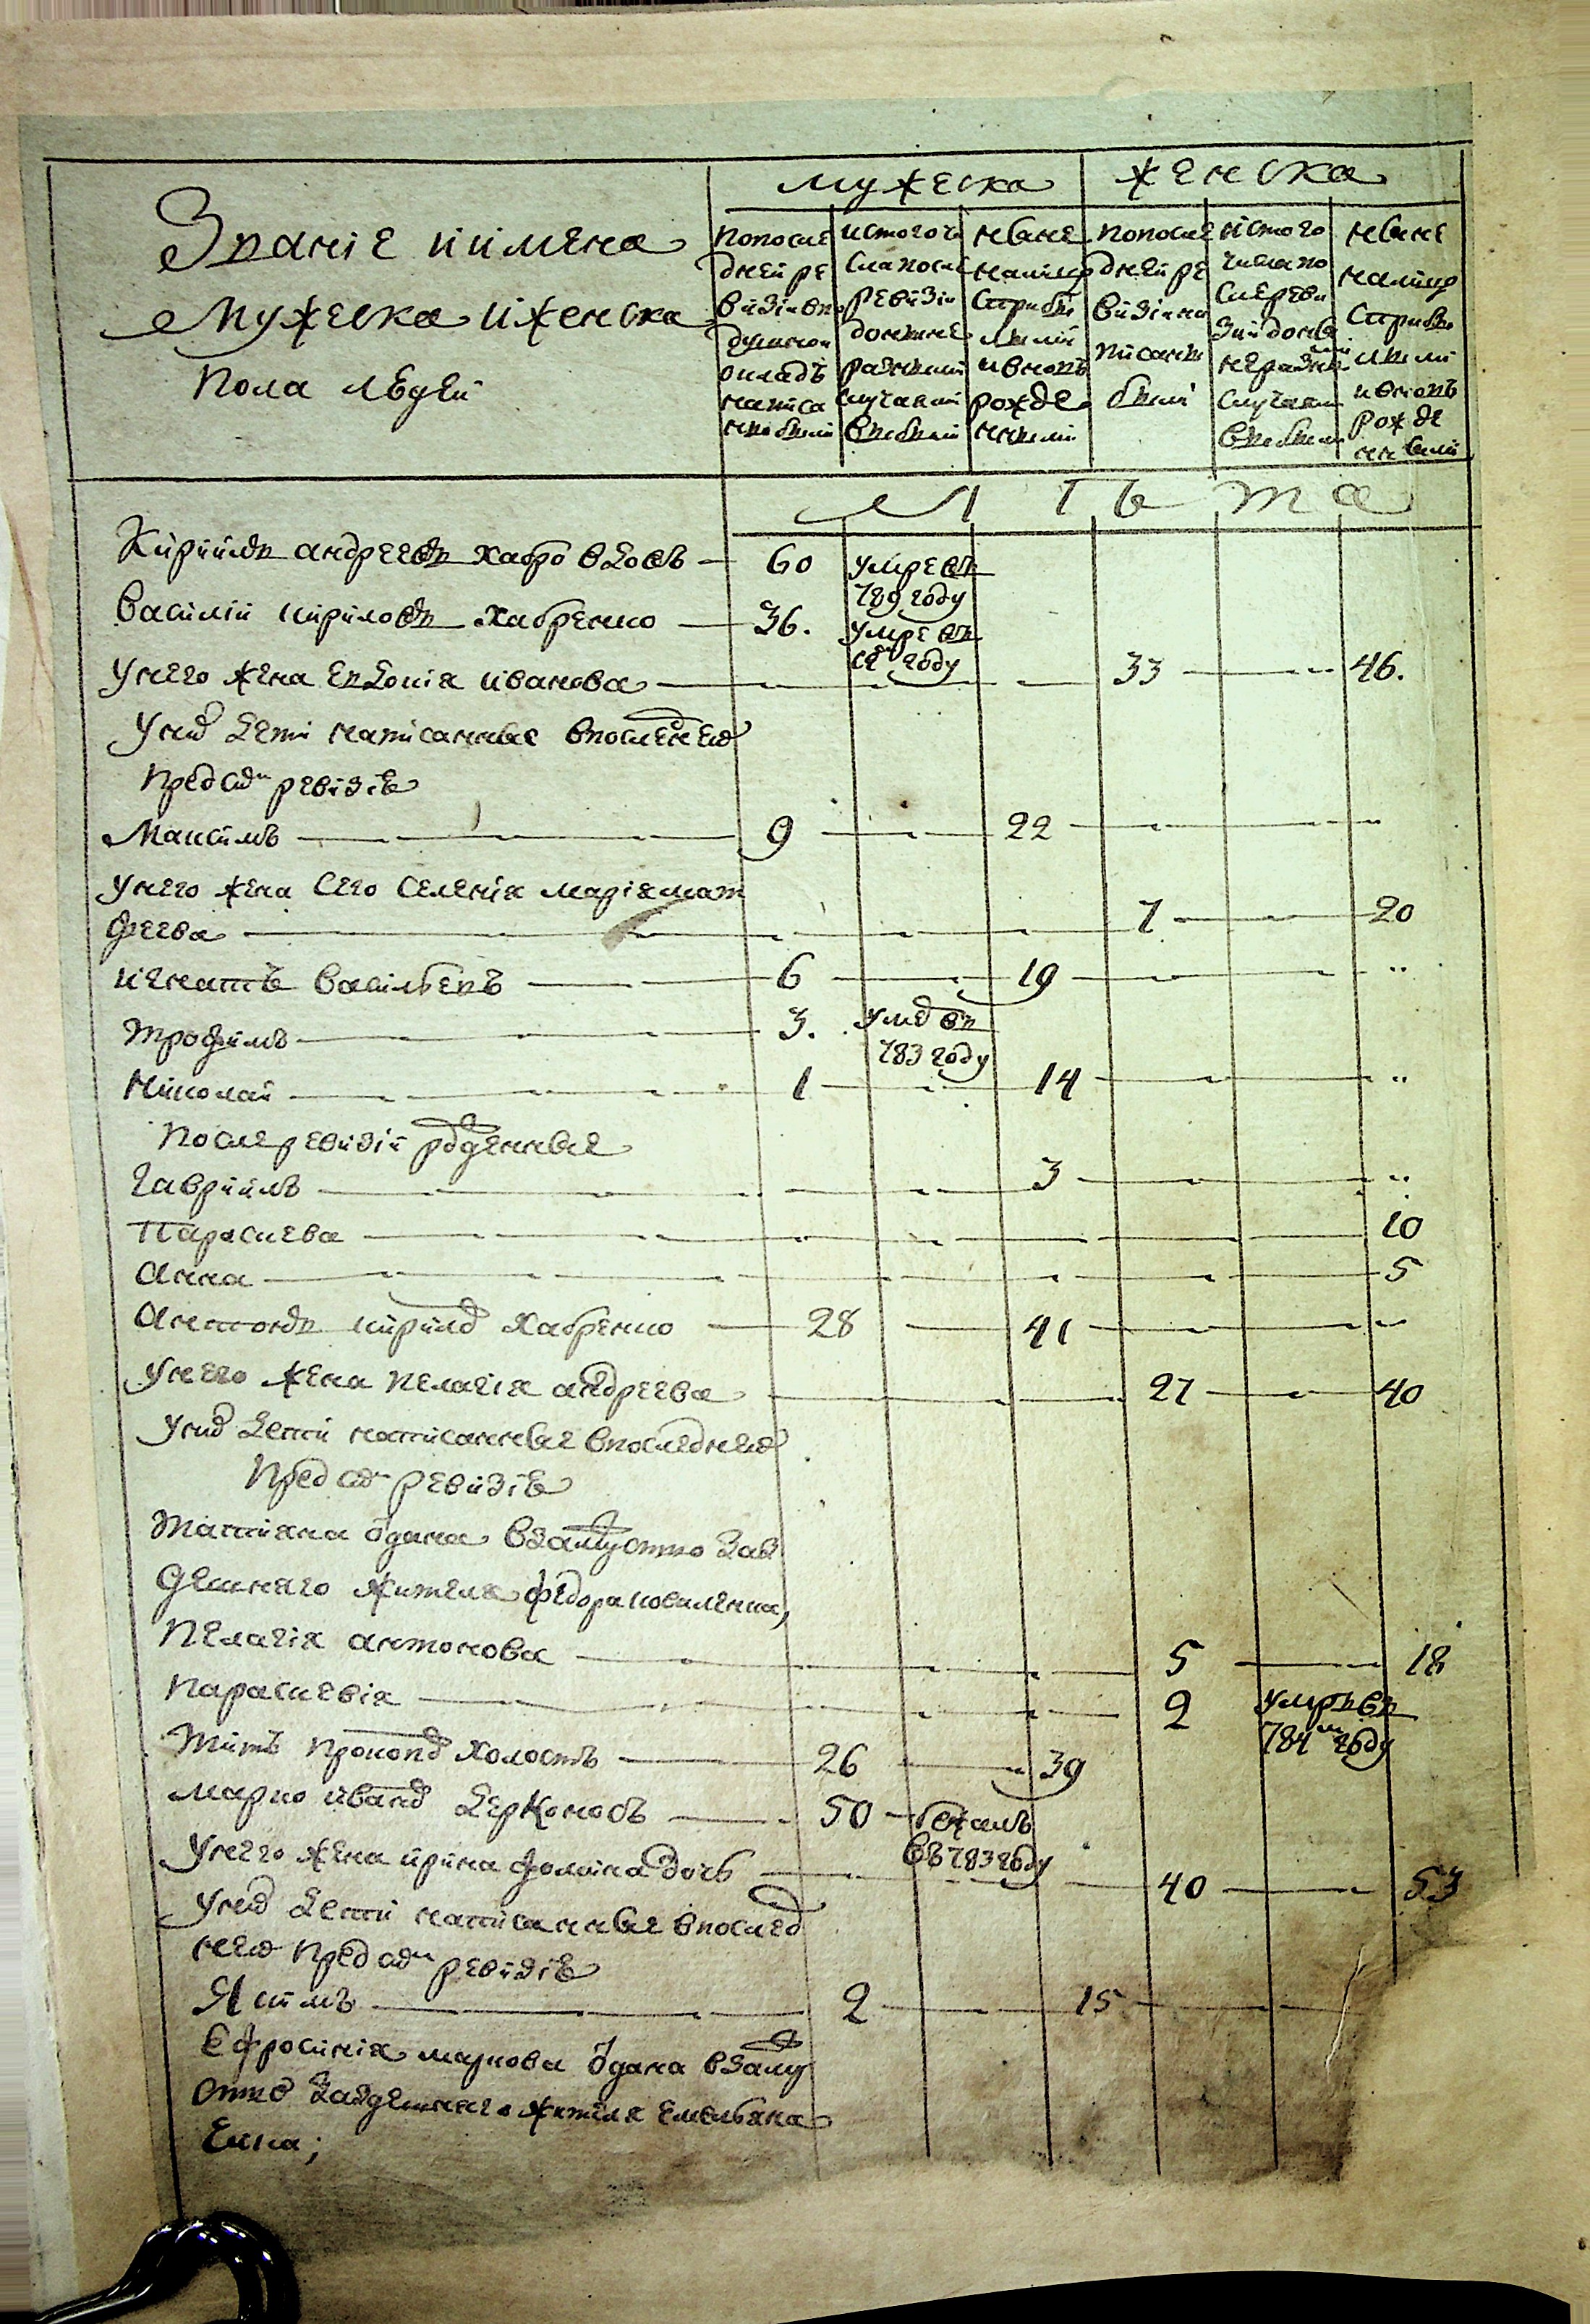 Званіе иимена
Мужеска иженска
пола людей
мужеска
женска
попосле
дней ре
визіивъ
душной
окладъ
написа
нобыли
истогочи
слапосле
ревизіи
доныне
разными
случаями
выбыли
ныне
налицо
старыхъ
ивновь
рожде
нными
попосле
дней ре
визіи на
писаны
были
истого
числа по
сле реви
зіи доны
не разны
ми
случаями
выбыли
ныне
налицо
старых
ивновь
рожде
нными
лѣта
Кирилъ андреевъ хабро вдовъ 60 умре въ
789 году
василій кириловъ хабренко 36. умре въ
году
Унего жена евдокія иванова 33 46.
Уних дети написанные впоследней
пред сим ревизіи
Максимъ 9 22
Унего жена сего селенія марія мат
феева 7 20
игнатъ васильевъ 6 19
трофимъ 3. умер въ
783 году
Николай 1 14
После ревизіи рожденные
гавріилъ 3
Параскева 10
Анна 5
Антонъ кирилов хабренко 28 41
Унего жена пелагія андреева 27 40
Уних дети написанные впоследней
пред сим ревизіи
татіяна одана взамужство зав
дешняго жителя федора коваленка,
пелагія антонова 5 18
параскевія 2 умре въ
784м году
Титъ прокоп холостъ 26 39
марко иванов деркачовъ 50 бежалъ
въ 783 году
Унего жена ирина фомина дочь 40 53
Уних дети написанные впослед
ней пред сим ревизіи
Якимъ 2 15
Ефросинія маркова одана взаму
ство зайдешняго жителя емельяна